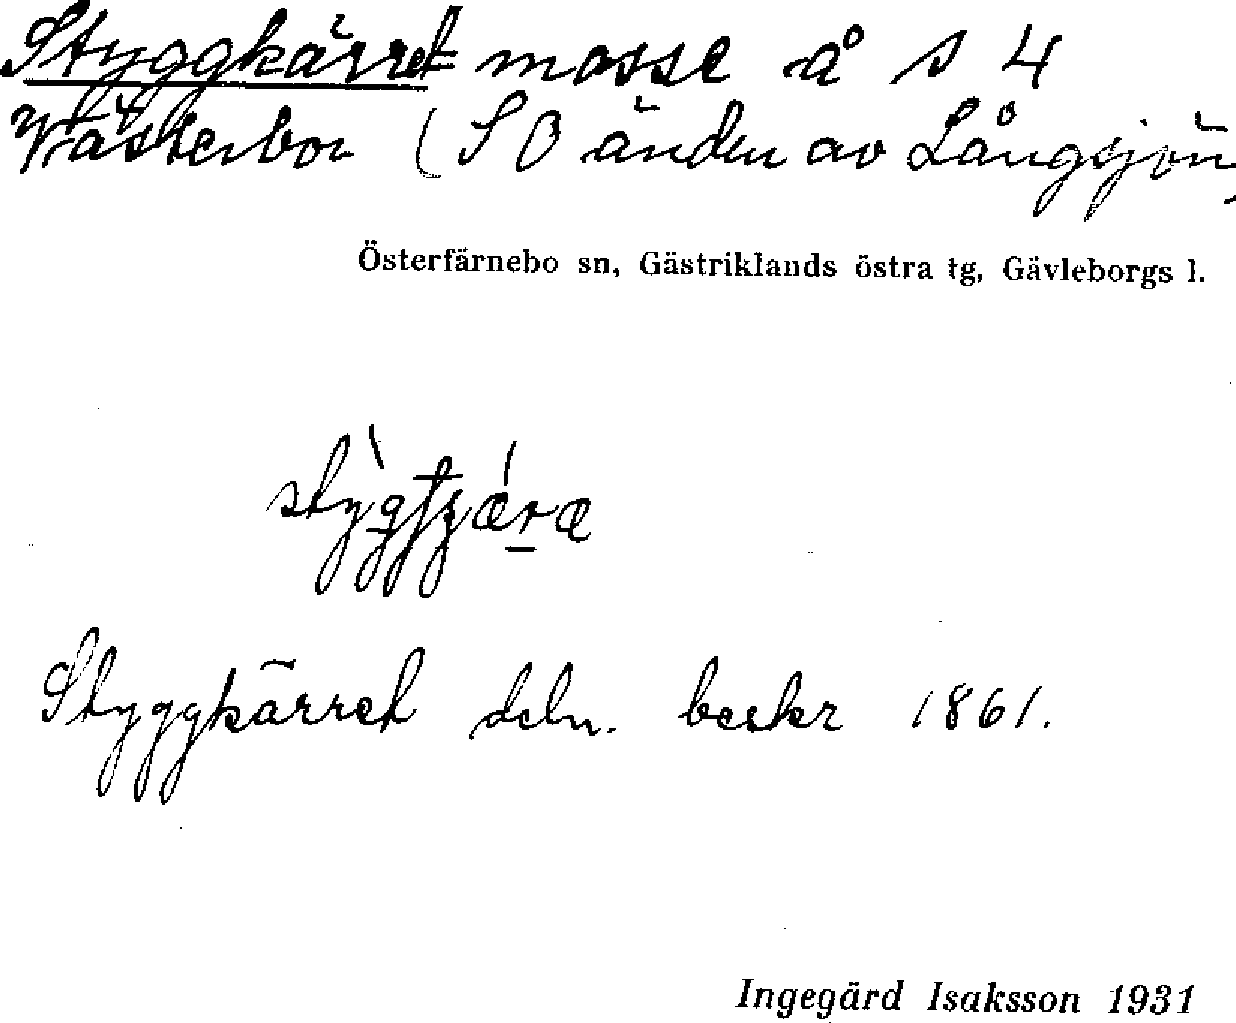 Styggkärret mosse å s 4
Västerbor (SO änden av Långsjön)
Österfärnebo sn, Gästriklands östra tg, Gävleborgs l.
Styggkärret deln. beskr 1861.
Ingegärd Isaksson 1931